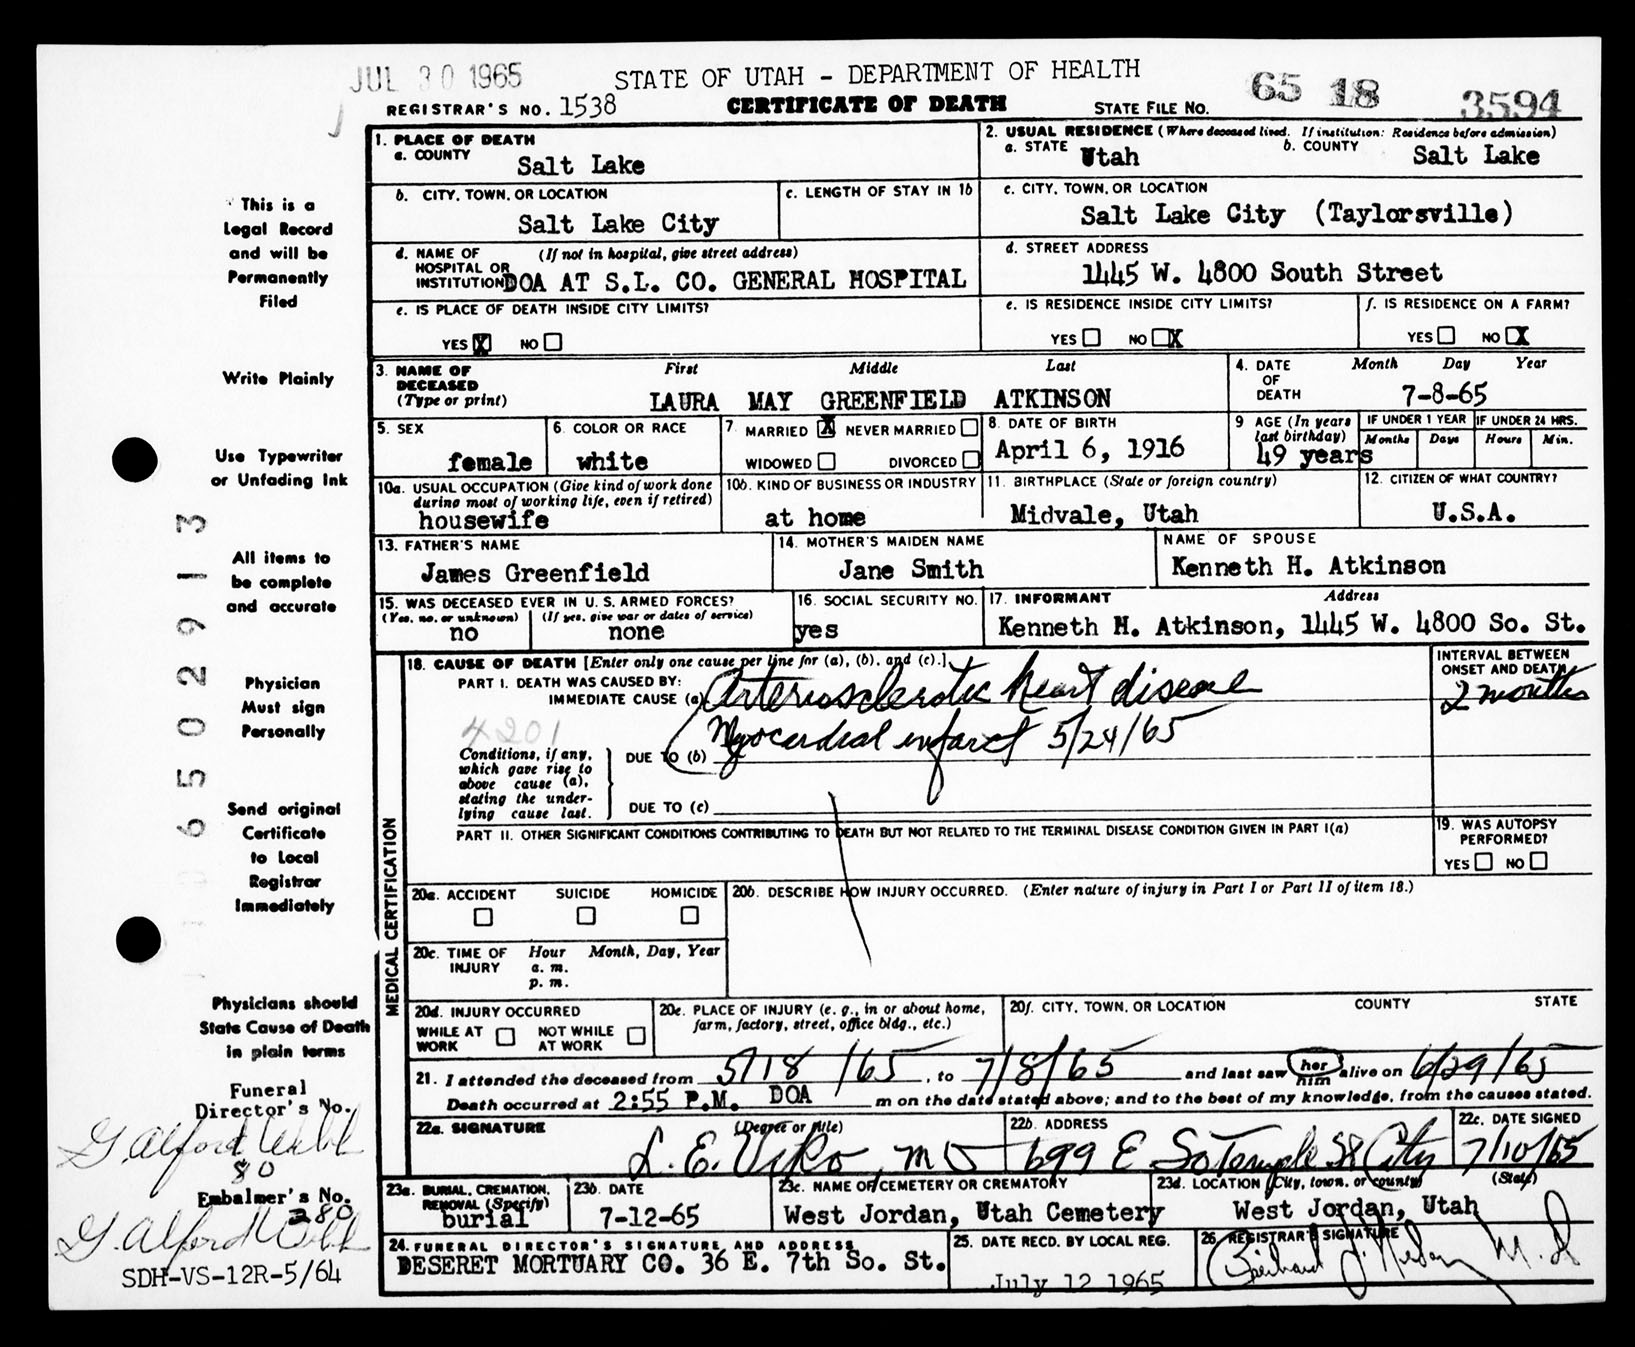 JUL 30 1965
STATE OF UTAH - DEPARTMENT OF HEALTH
65 18 3594
REGISTRAR'S NO. 1538
CERTIFICATE OF DEATH
STATE FILE NO.
This is a
Legal Record
and will be
Permanently
Filed
Write Plainly
Use Typewriter
or Unfading Ink
All items to
be complete
and accurate
Physician
Must sign
Personally
Send original
Certificate
to Local
Registrar
Immediately
Physicians should
State Cause of Death
in plain terms
Funeral
Director's No.
G. Alford Webb
80
Embalmer's No.
280
G. Alford Webb
SDH-VS-12R-5/64
06502913
1. PLACE OF DEATH
a. COUNTY
Salt Lake
2. USUAL RESIDENCE (Where deceased lived. If institution: Residence before admission)
a. STATE Utah
b. COUNTY Salt Lake
b. CITY, TOWN, OR LOCATION
Salt Lake City
c. LENGTH OF STAY IN 1b
c. CITY, TOWN, OR LOCATION
Salt Lake City (Taylorsville)
d. NAME OF HOSPITAL OR INSTITUTION (If not in hospital, give street address)
DOA AT S.L. CO. GENERAL HOSPITAL
d. STREET ADDRESS
1445 W. 4800 South Street
e. IS PLACE OF DEATH INSIDE CITY LIMITS?
YES X NO
e. IS RESIDENCE INSIDE CITY LIMITS?
YES NO X
f. IS RESIDENCE ON A FARM?
YES NO X
3. NAME OF DECEASED (Type or print)
First Middle Last
LAURA MAY GREENFIELD ATKINSON
4. DATE OF DEATH
Month Day Year
7-8-65
5. SEX
female
6. COLOR OR RACE
white
7. MARRIED X NEVER MARRIED
WIDOWED DIVORCED
8. DATE OF BIRTH
April 6, 1916
9 AGE (In years last birthday)
49 years
IF UNDER 1 YEAR
Months Days
IF UNDER 24 HRS.
Hours Min.
10a. USUAL OCCUPATION (Give kind of work done during most of working life, even if retired)
housewife
10b. KIND OF BUSINESS OR INDUSTRY
at home
11. BIRTHPLACE (State or foreign country)
Midvale, Utah
12. CITIZEN OF WHAT COUNTRY?
U.S.A.
13. FATHER'S NAME
James Greenfield
14. MOTHER'S MAIDEN NAME
Jane Smith
NAME OF SPOUSE
Kenneth H. Atkinson
15. WAS DECEASED EVER IN U. S. ARMED FORCES?
(Yes, no, or unknown) (If yes, give war or dates of service)
no none
16. SOCIAL SECURITY NO.
yes
17. INFORMANT Address
Kenneth H. Atkinson, 1445 W. 4800 So. St.
MEDICAL CERTIFICATION
18. CAUSE OF DEATH [Enter only one cause per line for (a), (b), and (c).]
PART I. DEATH WAS CAUSED BY:
IMMEDIATE CAUSE (a) Arteriosclerotic heart disease
INTERVAL BETWEEN ONSET AND DEATH
2 months
4201
Conditions, if any, which gave rise to above cause (a), stating the underlying cause last.
DUE TO (b) Myocardial infarct 5/24/65
DUE TO (c)
PART II. OTHER SIGNIFICANT CONDITIONS CONTRIBUTING TO DEATH BUT NOT RELATED TO THE TERMINAL DISEASE CONDITION GIVEN IN PART I(a)
19. WAS AUTOPSY PERFORMED?
YES NO
20a. ACCIDENT SUICIDE HOMICIDE
20b. DESCRIBE HOW INJURY OCCURRED. (Enter nature of injury in Part I or Part II of item 18.)
20c. TIME OF INJURY
Hour Month, Day, Year
a. m.
p. m.
20d. INJURY OCCURRED
WHILE AT WORK NOT WHILE AT WORK
20e. PLACE OF INJURY (e. g., in or about home, farm, factory, street, office bldg., etc.)
20f. CITY, TOWN, OR LOCATION COUNTY STATE
21. I attended the deceased from 5/18/65, to 7/8/65 and last saw her him alive on 6/29/65
Death occurred at 2:55 P.M. DOA m on the date stated above; and to the best of my knowledge, from the causes stated.
22a. SIGNATURE (Degree or title)
L. E. Viko, MD
22b. ADDRESS
699 E So Temple St City
22c. DATE SIGNED
7/10/65
23a. BURIAL, CREMATION, REMOVAL (Specify)
burial
23b. DATE
7-12-65
23c. NAME OF CEMETERY OR CREMATORY
West Jordan, Utah Cemetery
23d. LOCATION (City, town, or county) (State)
West Jordan, Utah
24. FUNERAL DIRECTOR'S SIGNATURE AND ADDRESS
DESERET MORTUARY CO. 36 E. 7th So. St.
25. DATE RECD. BY LOCAL REG.
July 12 1965
26. REGISTRAR'S SIGNATURE
M. D